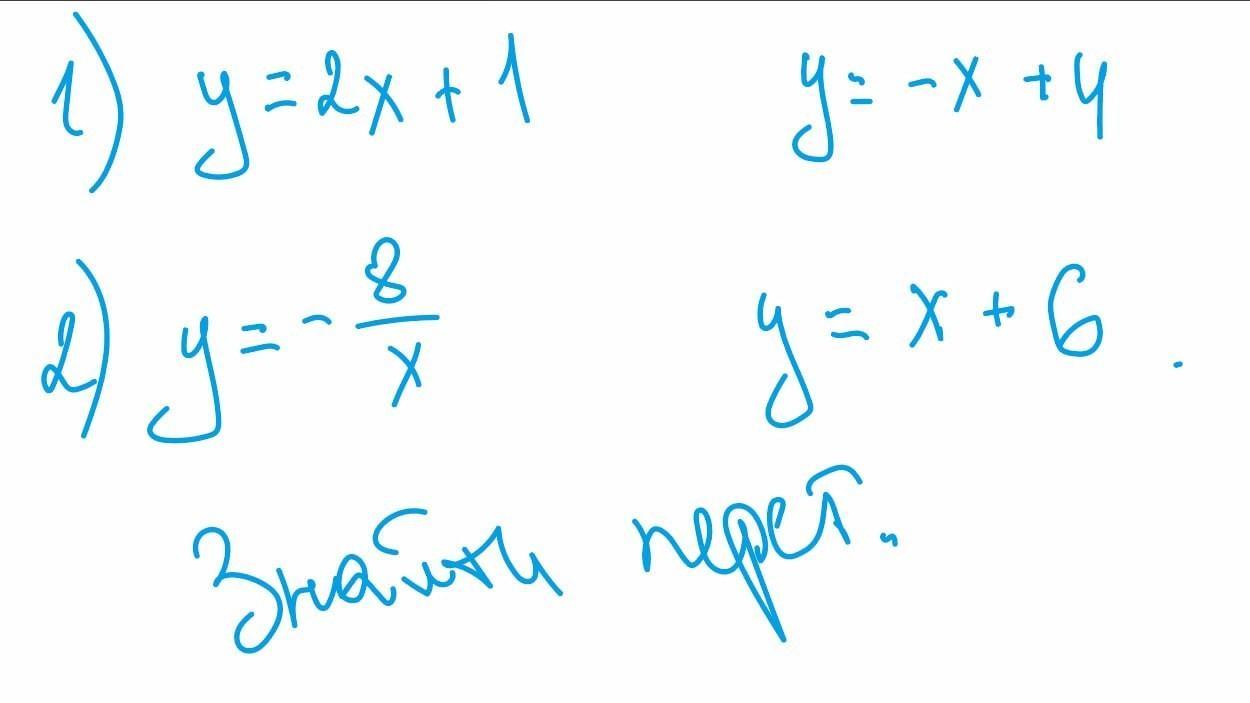 1) y = 2x + 1 y = -x + 4
2) y = - 8/x y = x + 6 .
Знайти перет.